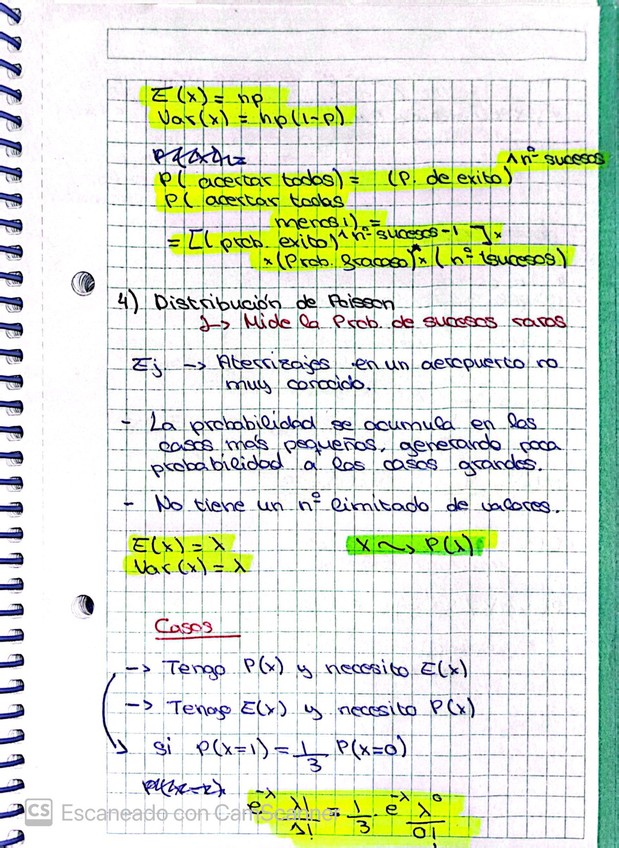 E(x) = np
Var(x) = np(1-p)
P( acertar todos) = (P. de exito)^nº sucesos
P( acertar todos
menos 1) =
= [(prob. exito)^nº sucesos-1]x
x(Prob. fracaso)^x(nº 1sucesos)
4) Distribución de Poisson
↳ Mide la Prob. de sucesos raros
Ej. -> Aterrizajes en un aeropuerto no
muy conocido.
- La probabilidad se acumula en los
casos más pequeños, generando poca
probabilidad a los casos grandes.
- No tiene un nº limitado de valores.
E(x) = λ
x ~> P(λ)
Var(x) = λ
Casos
-> Tengo P(x) y necesito E(x)
-> Tengo E(x) y necesito P(x)
si P(x=1) = 1/3 P(x=0)
e^-λ λ^1/1! = 1/3 · e^-λ λ^0/0!
CS Escaneado con CamScanner